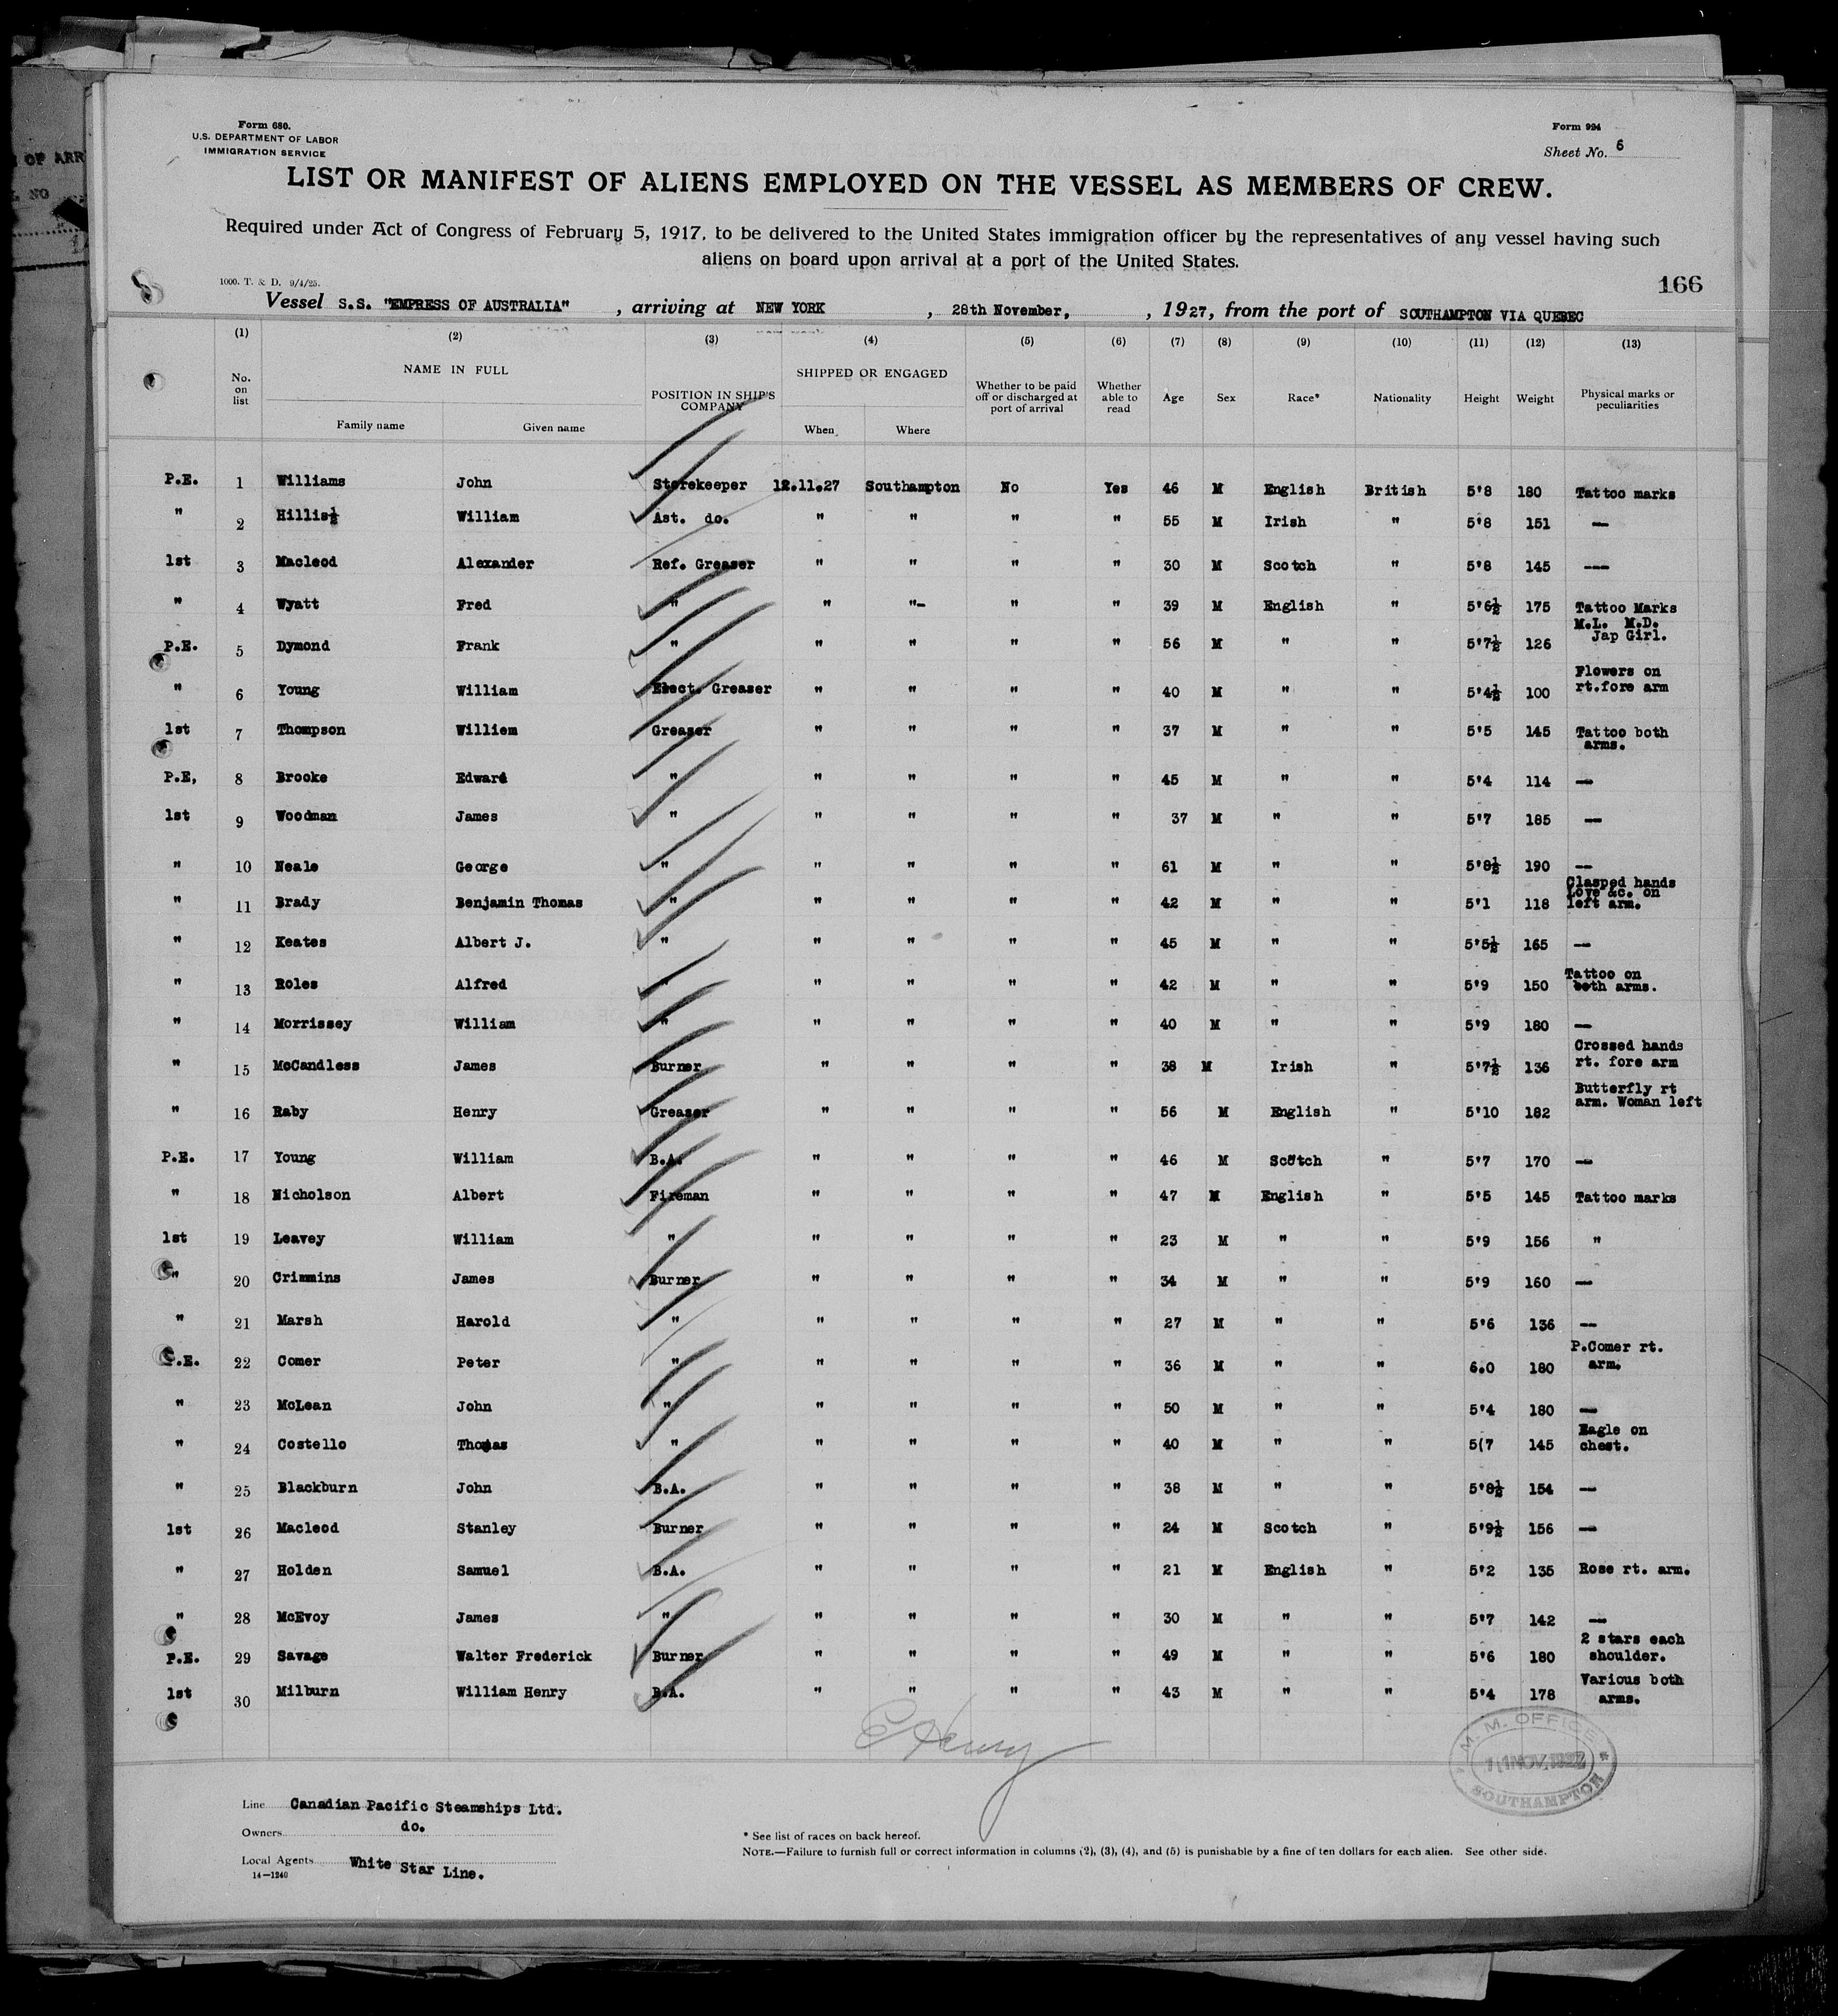 OF ARR
NO
Form 680.
U.S. DEPARTMENT OF LABOR
IMMIGRATION SERVICE
Form 994
Sheet No. 6
LIST OR MANIFEST OF ALIENS EMPLOYED ON THE VESSEL AS MEMBERS OF CREW.
Required under Act of Congress of February 5, 1917, to be delivered to the United States immigration officer by the representatives of any vessel having such
aliens on board upon arrival at a port of the United States.
166
1000. T. & D. 9/4/25.
Vessel S.S. "EMPRESS OF AUSTRALIA" , arriving at NEW YORK , 28th November, , 1927, from the port of SOUTHAMPTON VIA QUEBEC
(1) (2) (3) (4) (5) (6) (7) (8) (9) (10) (11) (12) (13)
No. on list NAME IN FULL Family name Given name POSITION IN SHIP'S COMPANY SHIPPED OR ENGAGED When Where Whether to be paid off or discharged at port of arrival Whether able to read Age Sex Race* Nationality Height Weight Physical marks or peculiarities
P.E. 1 Williams John Storekeeper 12.11.27 Southampton No Yes 46 M English British 5'8 180 Tattoo marks
" 2 Hillis½ William Ast. do. " " " " 55 M Irish " 5'8 151 —
1st 3 Macleod Alexander Ref. Greaser " " " " 30 M Scotch " 5'8 145 ---
" 4 Wyatt Fred " " "- " " 39 M English " 5'6½ 175 Tattoo Marks
P.E. 5 Dymond Frank " " " " " 56 M " " 5'7½ 126 M.L. M.D. Jap Girl.
" 6 Young William Elect. Greaser " " " " 40 M " " 5'4½ 100 Flowers on rt.fore arm
1st 7 Thompson Williem Greaser " " " " 37 M " " 5'5 145 Tattoo both arms.
P.E, 8 Brooke Edward " " " " " 45 M " " 5'4 114 —
1st 9 Woodman James " " " " " 37 M " " 5'7 185 —
" 10 Neale George " " " " " 61 M " " 5'8½ 190 —
" 11 Brady Benjamin Thomas " " " " " 42 M " " 5'1 118 Clasped hands Love &c. on left arm.
" 12 Keates Albert J. " " " " " 45 M " " 5'5½ 165 —
" 13 Roles Alfred " " " " " 42 M " " 5'9 150 Tattoo on both arms.
" 14 Morrissey William " " " " " 40 M " " 5'9 180 —
" 15 McCandless James Burner " " " " 38 M Irish " 5'7½ 136 Crossed hands rt. fore arm
" 16 Raby Henry Greaser " " " " 56 M English " 5'10 182 Butterfly rt arm. Woman left
P.E. 17 Young William B.A. " " " " 46 M Scotch " 5'7 170 —
" 18 Nicholson Albert Fireman " " " " 47 M English " 5'5 145 Tattoo marks
1st 19 Leavey William " " " " " 23 M " " 5'9 156 "
" 20 Crimmins James Burner " " " " 34 M " " 5'9 160 —
" 21 Marsh Harold " " " " " 27 M " " 5'6 136 —
P.E. 22 Comer Peter " " " " " 36 M " " 6.0 180 P.Comer rt. arm.
" 23 McLean John " " " " " 50 M " " 5'4 180 —
" 24 Costello Thomas " " " " " 40 M " " 5(7 145 Eagle on chest.
" 25 Blackburn John B.A. " " " " 38 M " " 5'8½ 154 —
1st 26 Macleod Stanley Burner " " " " 24 M Scotch " 5'9½ 156 —
" 27 Holden Samuel B.A. " " " " 21 M English " 5'2 135 Rose rt. arm.
" 28 McEvoy James " " " " " 30 M " " 5'7 142 —
P.E. 29 Savage Walter Frederick Burner " " " " 49 M " " 5'6 180 2 stars each shoulder.
1st 30 Milburn William Henry B.A. " " " " 43 M " " 5'4 178 Various both arms.
C Henry
M. M. OFFICE
11 NOV. 1927
SOUTHAMPTON
Line Canadian Pacific Steamships Ltd.
Owners do.
Local Agents White Star Line.
14—1240
* See list of races on back hereof.
NOTE.—Failure to furnish full or correct information in columns (2), (3), (4), and (5) is punishable by a fine of ten dollars for each alien. See other side.